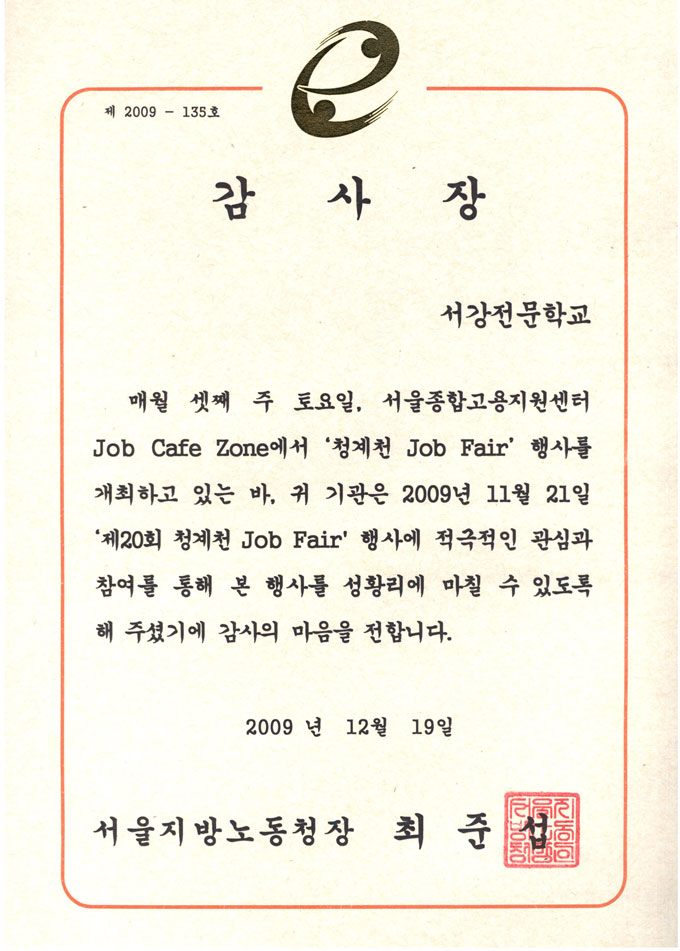 제 2009 - 135호
감 사 장
서강전문학교
매월 셋째 주 토요일, 서울종합고용지원센터
Job Cafe Zone에서 '청계천 Job Fair' 행사를
개최하고 있는 바, 귀 기관은 2009년 11월 21일
'제20회 청계천 Job Fair' 행사에 적극적인 관심과
참여를 통해 본 행사를 성황리에 마칠 수 있도록
해 주셨기에 감사의 마음을 전합니다.
2009 년 12월 19일
서울지방노동청장 최 준 섭